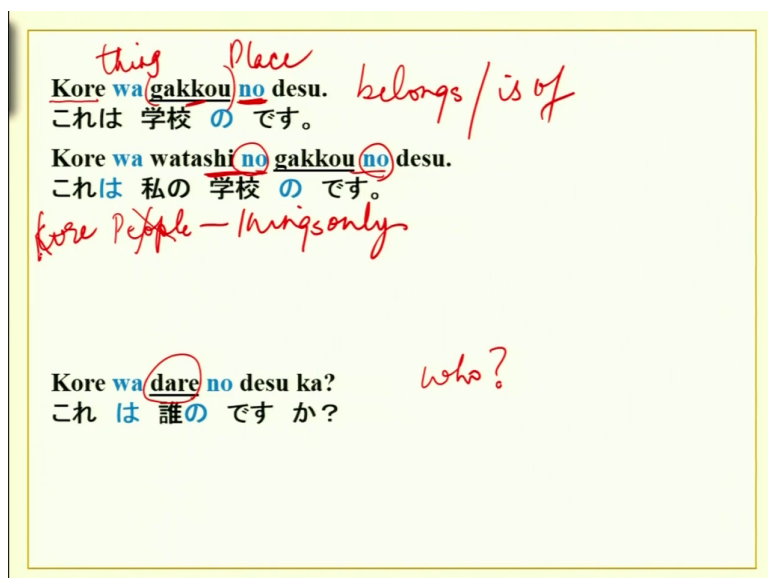 thing Place
Kore wa gakkou no desu. belongs / is of
これは 学校 の です。
Kore wa watashi no gakkou no desu.
これは 私の 学校 の です。
Kore People – Things only
Kore wa dare no desu ka? who?
これ は 誰の です か？